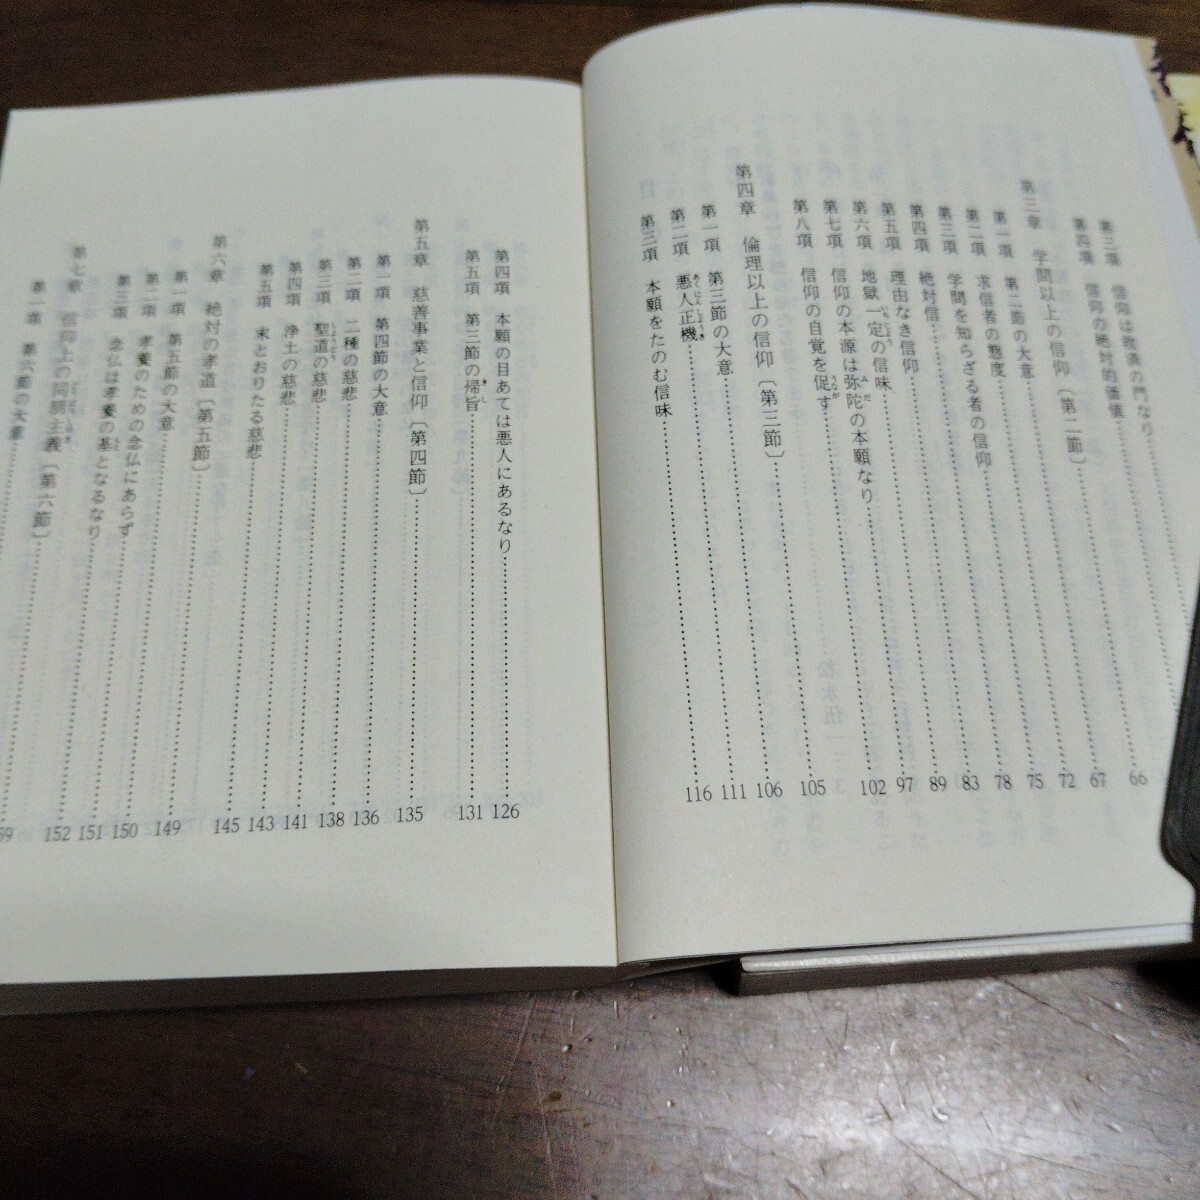 第三項　信仰は救済の門なり……66
第四項　信仰の絶対的価値……67
第三章　学問以上の信仰〔第二節〕……72
第一項　第二節の大意……75
第二項　求信者の態度……78
第三項　学問を知らざる者の信仰……83
第四項　絶対信……89
第五項　理由なき信仰……97
第六項　地獄一定の信味……102
第七項　信仰の本源は弥陀の本願なり
第八項　信仰の自覚を促す……105
第四章　倫理以上の信仰〔第三節〕……106
第一項　第三節の大意……111
第二項　悪人正機……116
第三項　本願をたのむ信味
第四項　本願の目あては悪人にあるなり……126
第五項　第三節の帰旨……131
第五章　慈善事業と信仰〔第四節〕……135
第一項　第四節の大意……136
第二項　二種の慈悲……138
第三項　聖道の慈悲……141
第四項　浄土の慈悲……143
第五項　末とおりたる慈悲
第六章　絶対の孝道〔第五節〕……145
第一項　第五節の大意……149
第二項　孝養のための念仏にあらず……150
第三項　念仏は孝養の基となるなり……151
第七章　信仰上の同朋主義〔第六節〕……152
第一項　第六節の大意……